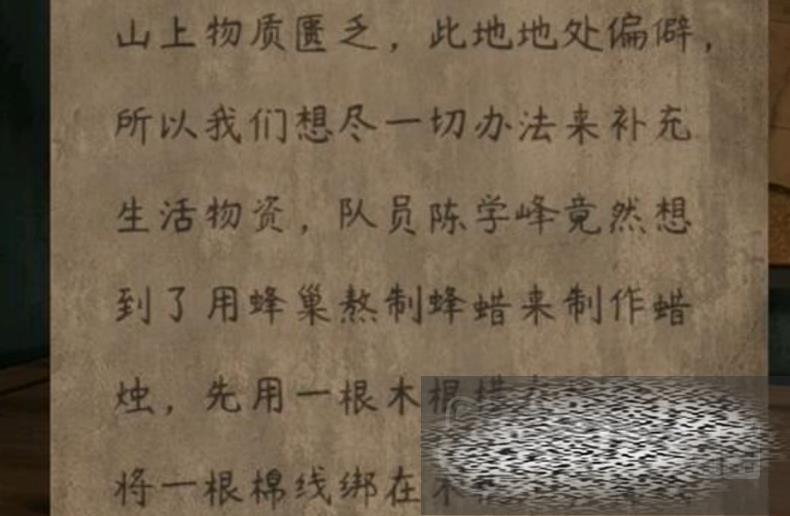 山上物质匮乏，此地地处偏僻，
所以我们想尽一切办法来补充
生活物资，队员陈学峰竟然想
到了用蜂巢熬制蜂蜡来制作蜡
烛，先用一根木棍
将一根棉线绑在木